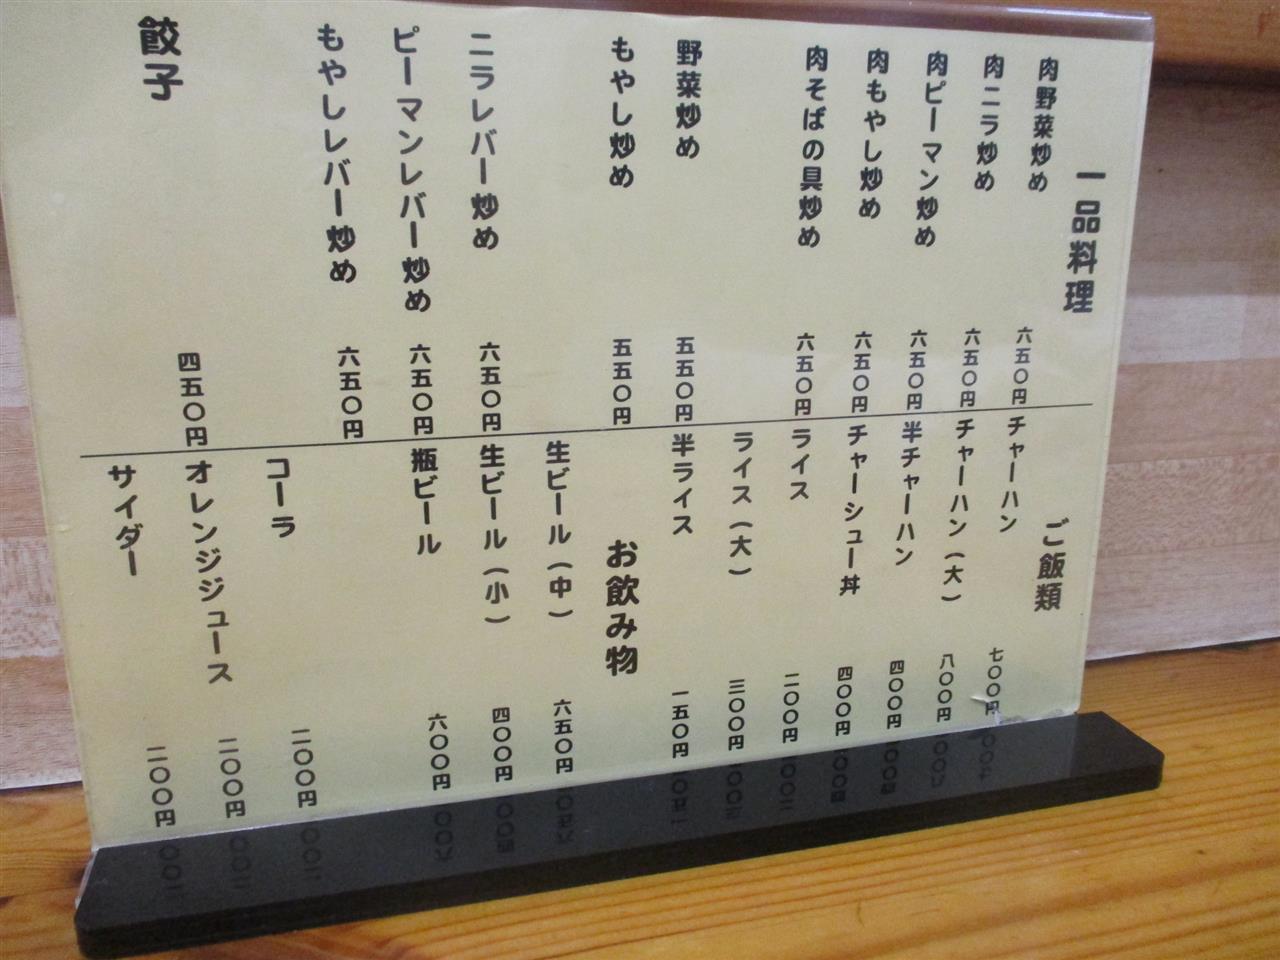 一品料理
肉野菜炒め 六五〇円
肉ニラ炒め 六五〇円
肉ピーマン炒め 六五〇円
肉もやし炒め 六五〇円
肉そばの具炒め 六五〇円
野菜炒め 五五〇円
もやし炒め 五五〇円
ニラレバー炒め 六五〇円
ピーマンレバー炒め 六五〇円
もやしレバー炒め 六五〇円
餃子 四五〇円
ご飯類
チャーハン 七〇〇円
チャーハン(大) 八〇〇円
半チャーハン 四〇〇円
チャーシュー丼 四〇〇円
ライス 二〇〇円
ライス(大) 三〇〇円
半ライス 一五〇円
お飲み物
生ビール(中) 六五〇円
生ビール(小) 四〇〇円
瓶ビール 六〇〇円
コーラ 二〇〇円
オレンジジュース 二〇〇円
サイダー 二〇〇円